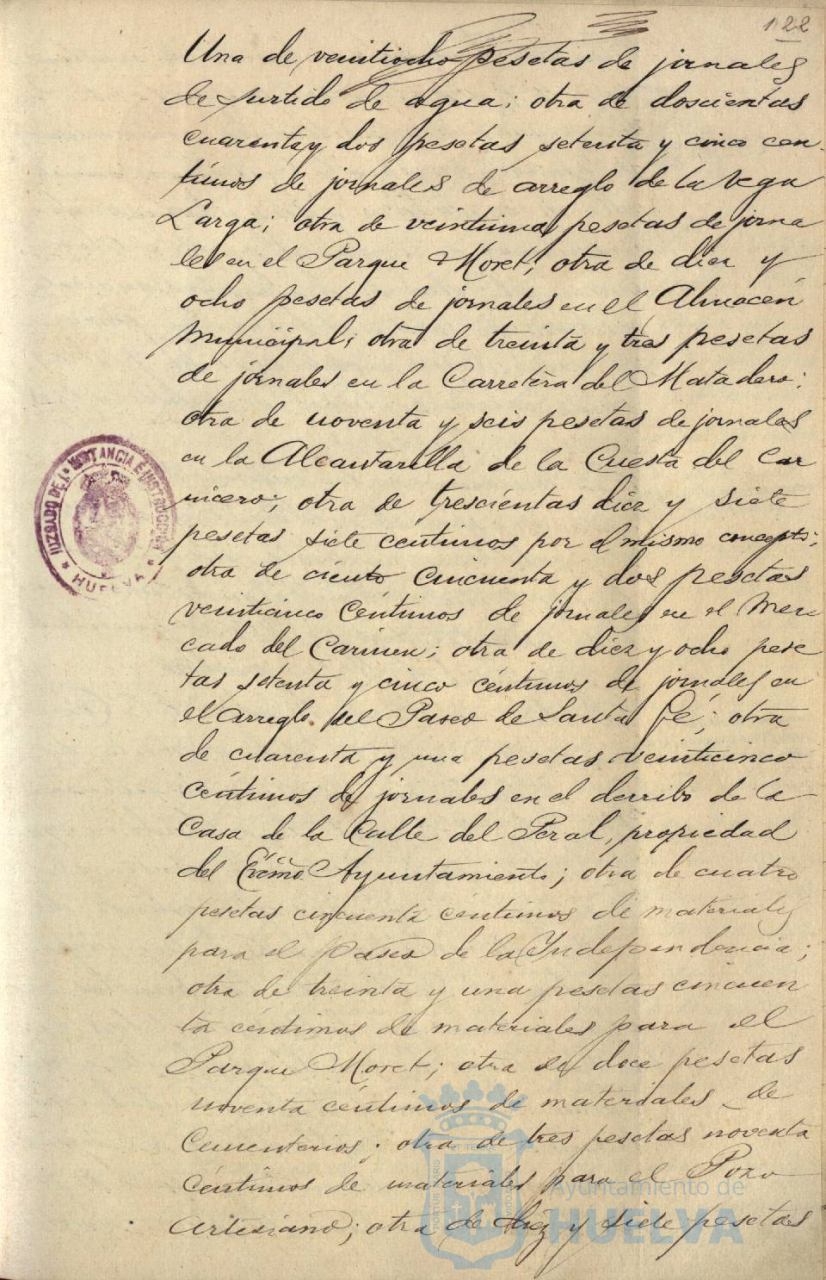 122
Una de veintiocho pesetas de jornales
de surtido de agua; otra de doscientas
cuarenta y dos pesetas setenta y cinco cen-
timos de jornales de arreglo de la Vega
Larga; otra de veintiuna pesetas de jorna
les en el Parque Moret; otra de diez y
ocho pesetas de jornales en el Almacén
Municipal; otra de treinta y tres pesetas
de jornales en la Carretera del Matadero;
otra de noventa y seis pesetas de jornales
en la Alcantarilla de la Cuesta del Car
nicero; otra de trescientas diez y siete
pesetas siete céntimos por el mismo concepto;
otra de ciento cincuenta y dos pesetas
veinticinco céntimos de jornales en el Mer
cado del Carmen; otra de diez y ocho pese
tas setenta y cinco céntimos de jornales en
el arreglo del Paseo de Santa Fé; otra
de cuarenta y una pesetas veinticinco
céntimos de jornales en el derribo de la
Casa de la Calle del Peral, propiedad
del Excmo Ayuntamiento; otra de cuatro
pesetas cincuenta céntimos de materiales
para el paseo de la Independencia;
otra de treinta y una pesetas cincuen
ta céntimos de materiales para el
Parque Moret; otra de doce pesetas
noventa céntimos de materiales de
Cementerios; otra de tres pesetas noventa
céntimos de materiales para el Pozo
Artesiano; otra de diez y siete pesetas
JUZGADO DE 1ª INSTANCIA E INSTRUCCION
* HUELVA *
Ayuntamiento de
HUELVA